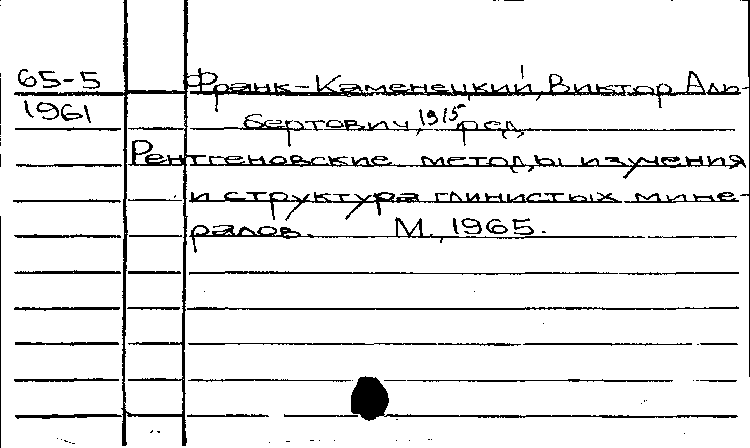 65-5 Франк-Каменецкий, Виктор Аль-
1961
бертович, 1915, ред.
Рентгеновские методы изучения
и структура глинистых мине-
ралов. М., 1965.